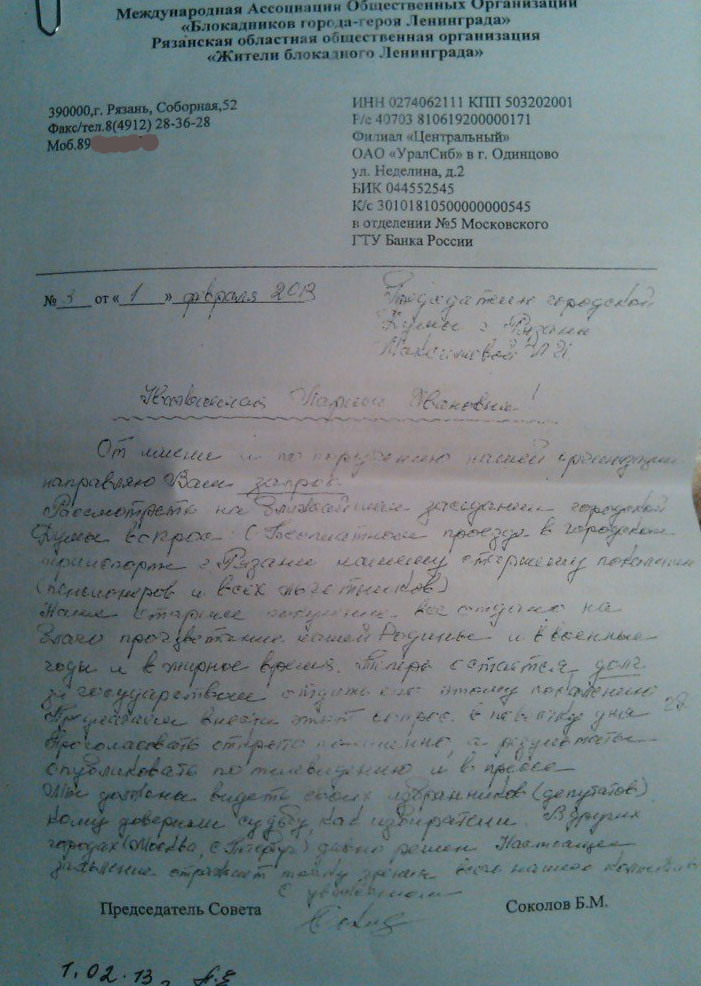 Международная Ассоциация Общественных Организаций
«Блокадников города-героя Ленинграда»
Рязанская областная общественная организация
«Жители блокадного Ленинграда»
390000,г. Рязань, Соборная,52
Факс/тел.8(4912) 28-36-28
Моб.89
ИНН 0274062111 КПП 503202001
Р/с 40703 810619200000171
Филиал «Центральный»
ОАО «УралСиб» в г. Одинцово
ул. Неделина, д.2
БИК 044552545
К/с 30101810500000000545
в отделении №5 Московского
ГТУ Банка России
№ 3 от « 1 » февраля 2013
Председателю городской
Думы г Рязани
Максимовой Л И
Уважаемая Лариса Ивановна!
От имени и по поручению нашей организации
направляю Вам запрос
Рассмотреть на ближайшем заседании городской
Думы вопрос: О бесплатном проезде в городском
транспорте г Рязани нашему старшему поколению
(пенсионеров и всех льготников)
Наше старшее поколение все отдало на
благо процветание нашей Родины и в военные
годы и в мирное время. Теперь остается долг
за государством отдать его этому поколению
Предлагаем внести этот вопрос в повестку дня
Проголосовать открыто поименно, а результаты
опубликовать по телевидению и в прессе
Мы должны видеть своих избранников (депутатов)
кому доверили судьбу, как избиратели. В других
городах (Москва, С Петербург) давно решен Настоящее
заявление отражает точку зрения всего нашего
С уважением
Председатель Совета
Соколов Б.М.
1.02.13 г